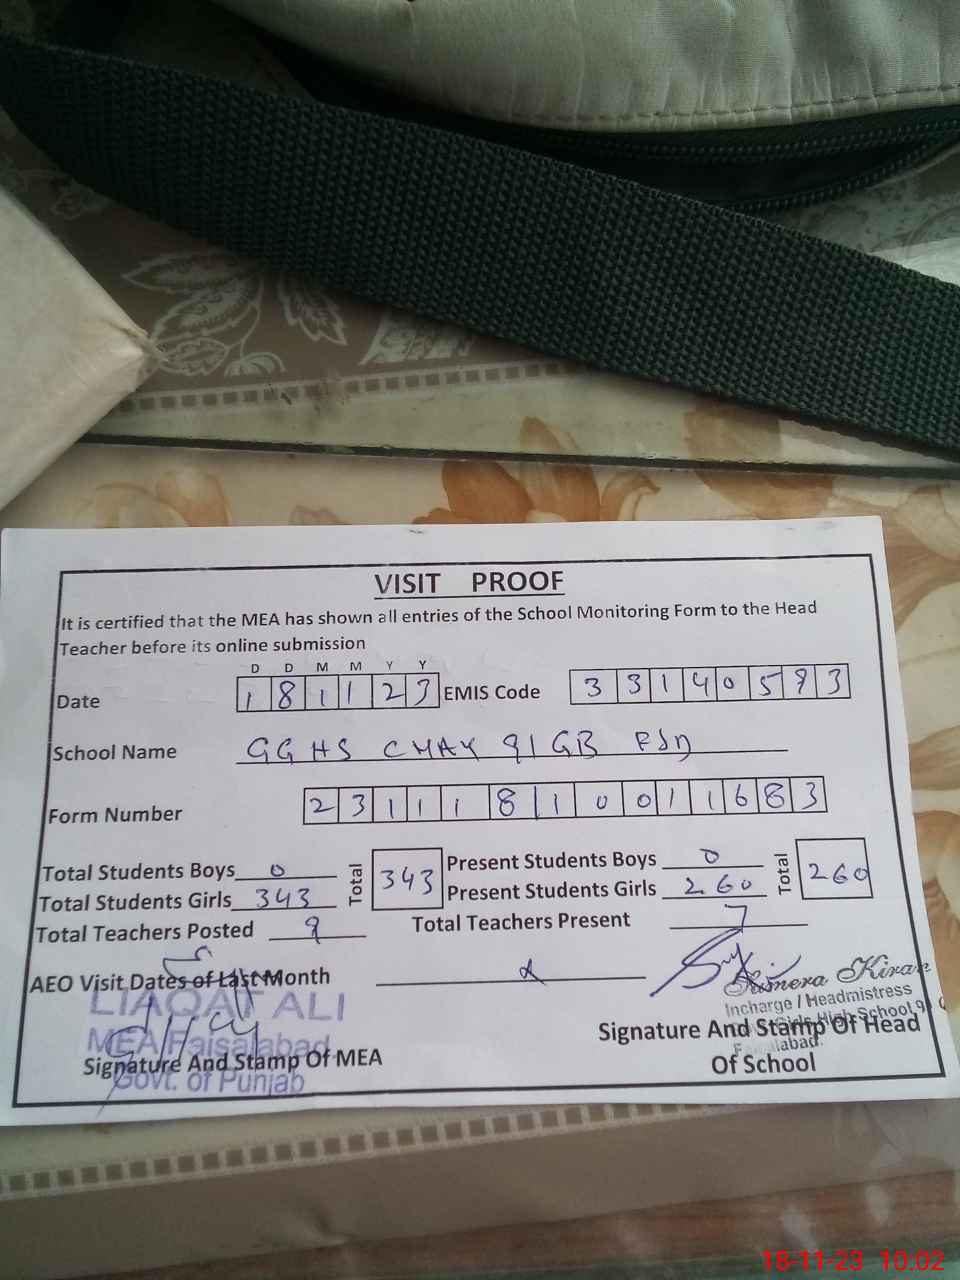 VISIT PROOF
It is certified that the MEA has shown all entries of the School Monitoring Form to the Head
Teacher before its online submission
D D M M Y Y
Date 1 8 1 1 2 3 EMIS Code 3 3 1 4 0 5 9 3
School Name GGHS CHAK 91 GB FSD
Form Number 2 3 1 1 1 8 1 0 0 1 1 6 8 3
Total Students Boys 0 Total 343 Present Students Boys 0 Total 260
Total Students Girls 343 Present Students Girls 260
Total Teachers Posted 9 Total Teachers Present 7
AEO Visit Dates of Last Month
LIAQAT ALI
MEA Faisalabad
Govt. of Punjab
Signature And Stamp Of MEA
Sumera Kiran
Incharge / Headmistress
Girls High School 9
Faisalabad.
Signature And Stamp Of Head
Of School
18-11-23 10:02